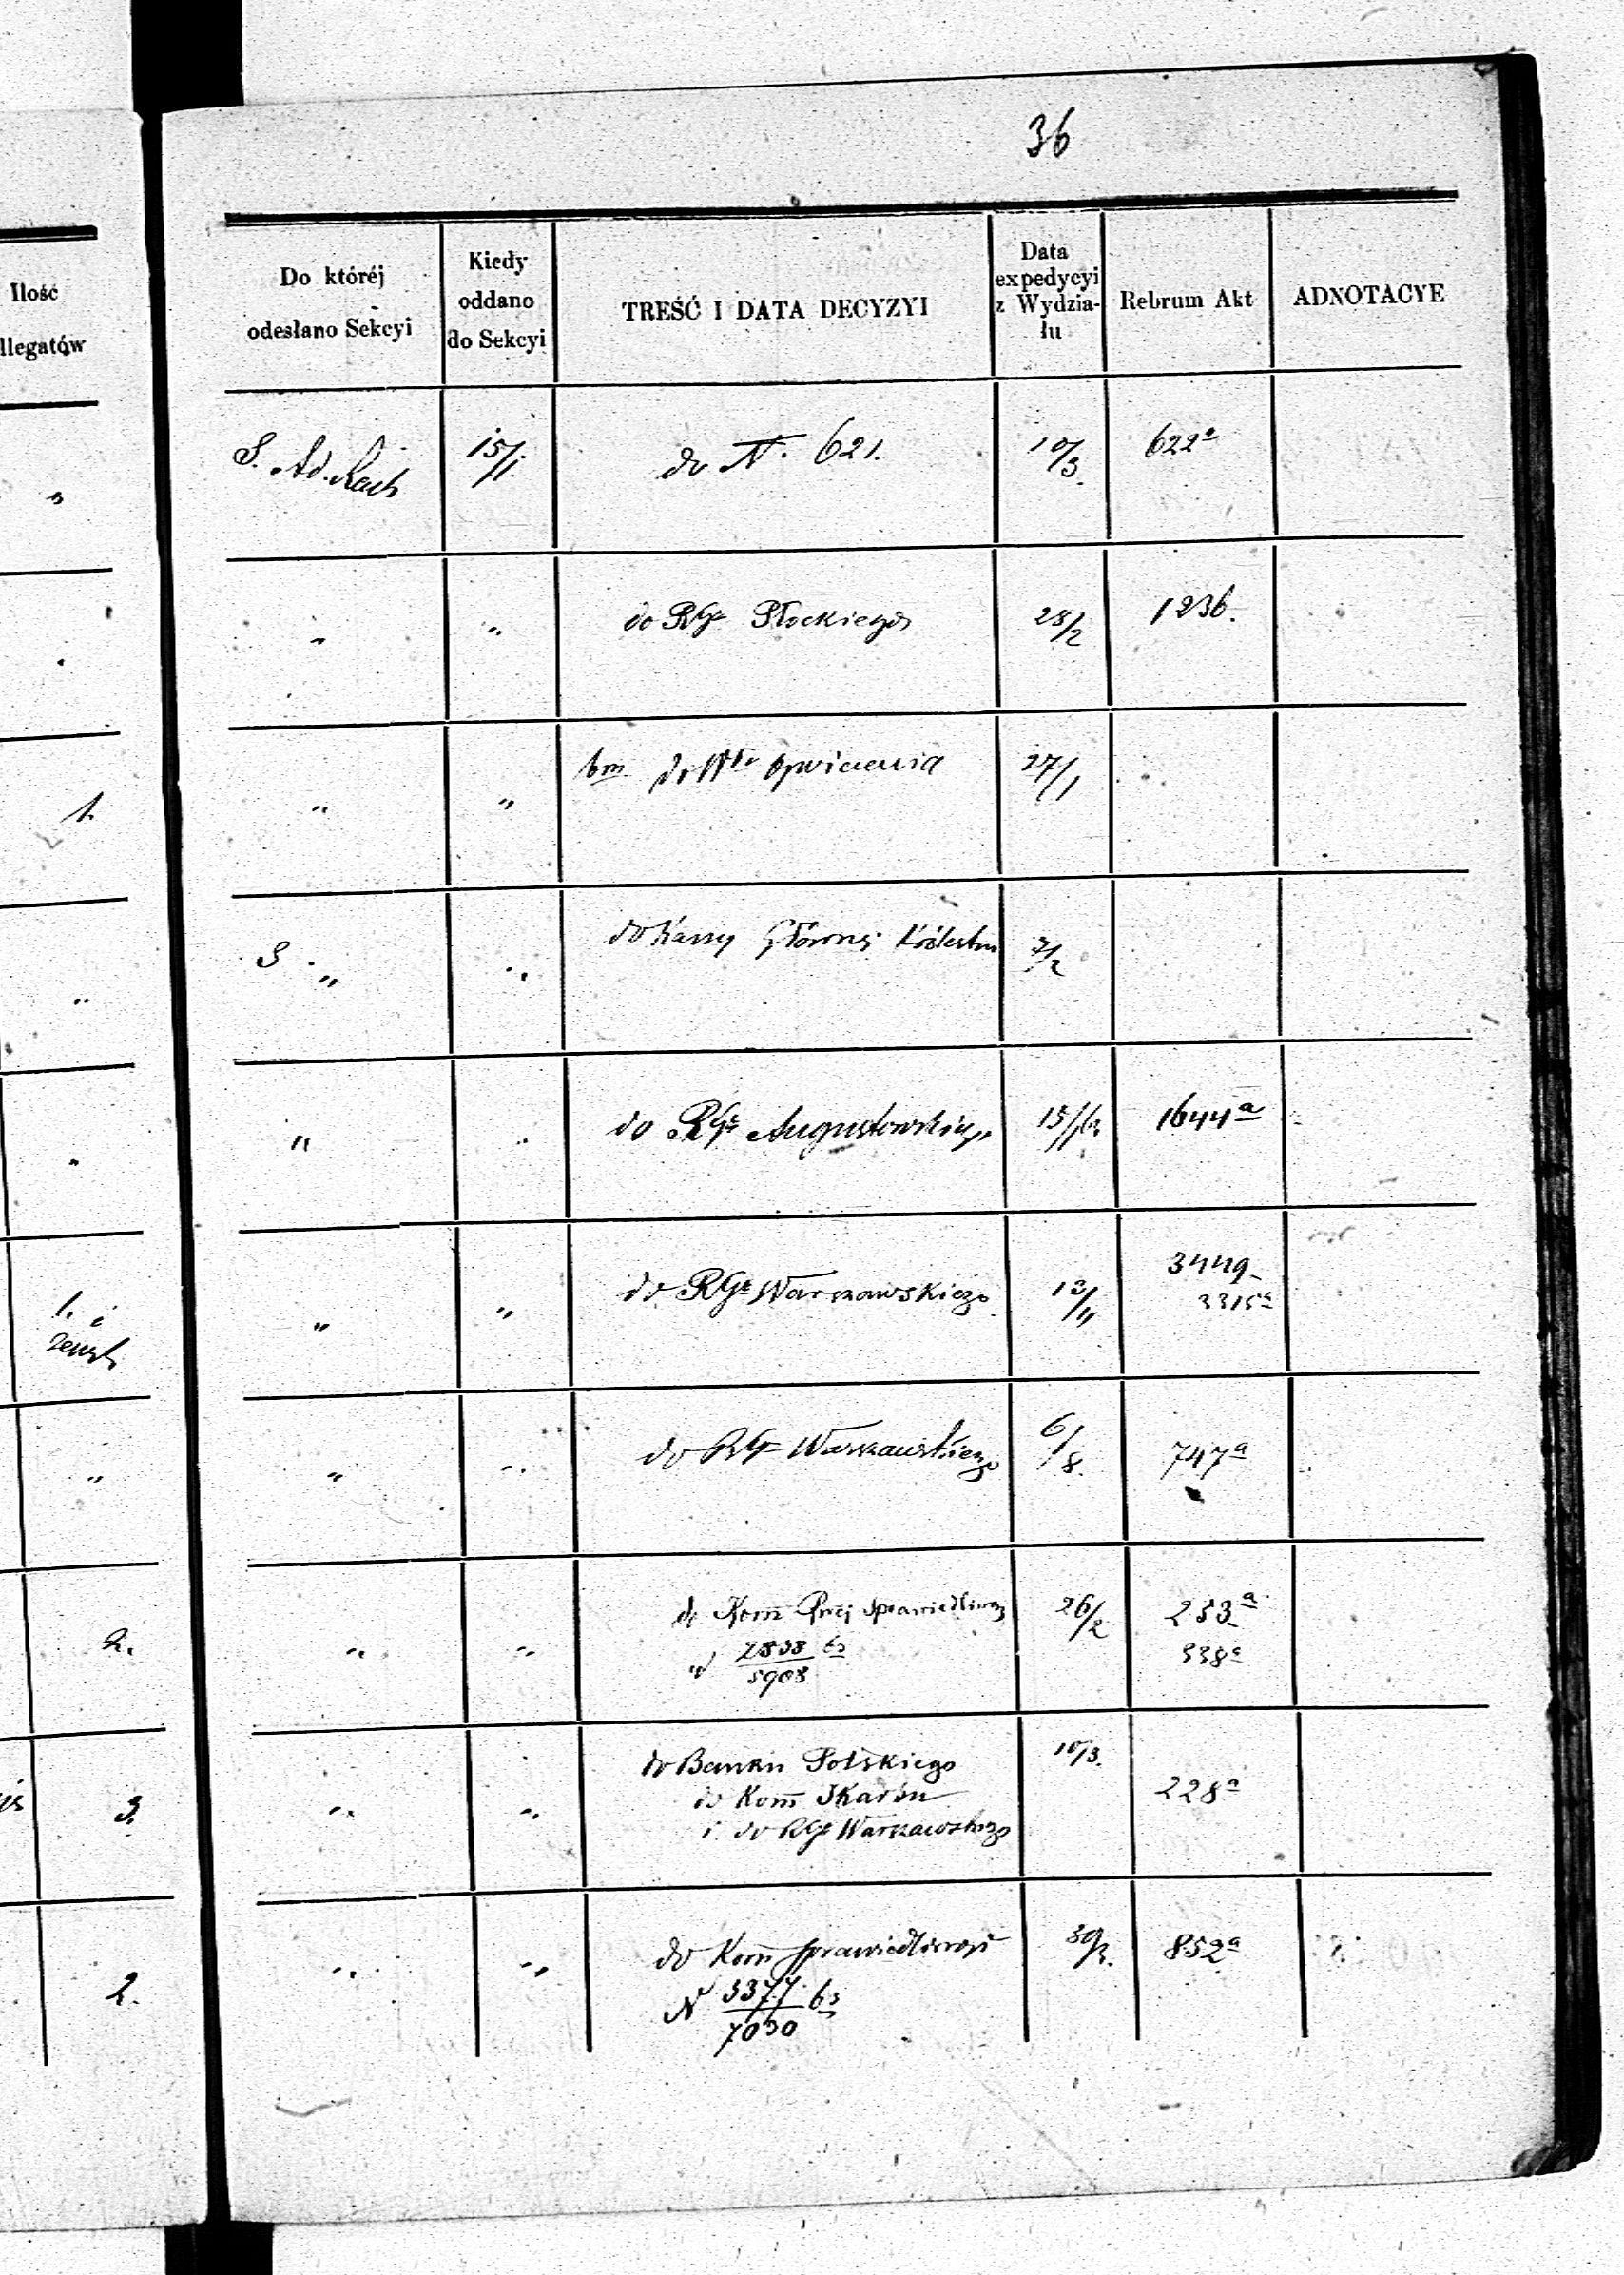 36
Ilość
llegatów
Do któréj
odesłano Sekcyi
Kiedy
oddano
do Sekcyi
TREŚĆ I DATA DECYZYI
Data
expedycyi
z Wydzia-
łu
Rebrum Akt
ADNOTACYE
S. Ad. Rach 15/1. do N. 621. 10/3. 622a
„
„ „ do RGo Płockiego 28/2 1236.
1. „ „ do 27/1
„ S. „ „ do Kassy Głównej Królestwa 7/2
„ „ do RGo Augustowskiego 1644a
1. i „ „ do RGo Warszawskiego 3449
3315a
„ „ „ do RGo Warszawskiego 6/8. 747a
2. „ „ do Kom Sprawiedliwoś 26/2 253a
2838/5908 63 338a
3. „ „ do Banku Polskiego 10/3. 228a
do Kom Skarbu
i do RGo Warszawskiego
2. „ „ do Kom Sprawiedliwości 30/3. 852a
N 3377/7030 63